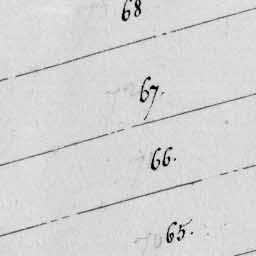 68
67.
66.
65.